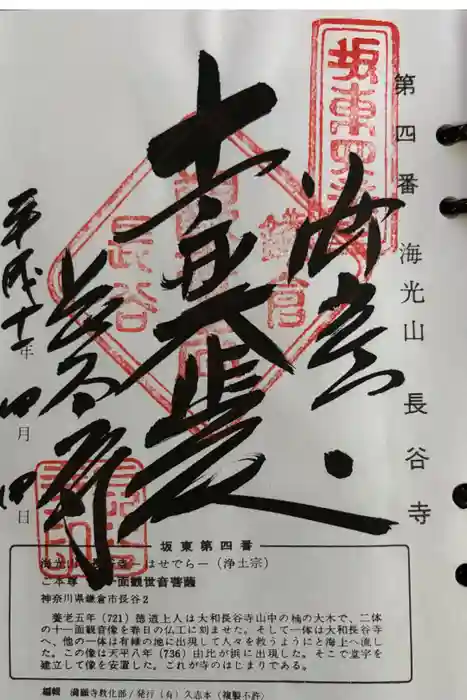 第四番 海光山 長谷寺
坂東四
鎌倉
長谷
海光山
十一面大悲
長谷寺
平成十一年 四月 四日
坂東第四番
海光山 長谷寺―はせでら―(浄土宗)
ご本尊 十一面観世音菩薩
神奈川県鎌倉市長谷2
養老五年(721)徳道上人は大和長谷寺山中の楠の大木で、二体
の十一面観音像を春日の仏工に刻ませた。そして一体は大和長谷寺
へ、他の一体は有縁の地に出現して人々を救うようにと海上へ流し
た。この像は天平八年(736)由比が浜に出現した。そこで堂宇を
建立して像を安置した。これが寺のはじまりである。
編輯 満願寺教化部/発行(有)久志本(複製不許)